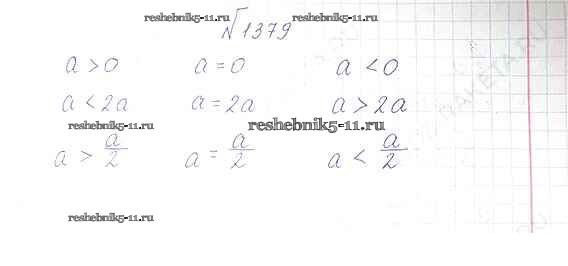 reshebnik5-11.ru
№1379
a > 0 a = 0 a < 0
a < 2a a = 2a a > 2a
reshebnik5-11.ru reshebnik5-11.ru
a > a/2 a = a/2 a < a/2
reshebnik5-11.ru